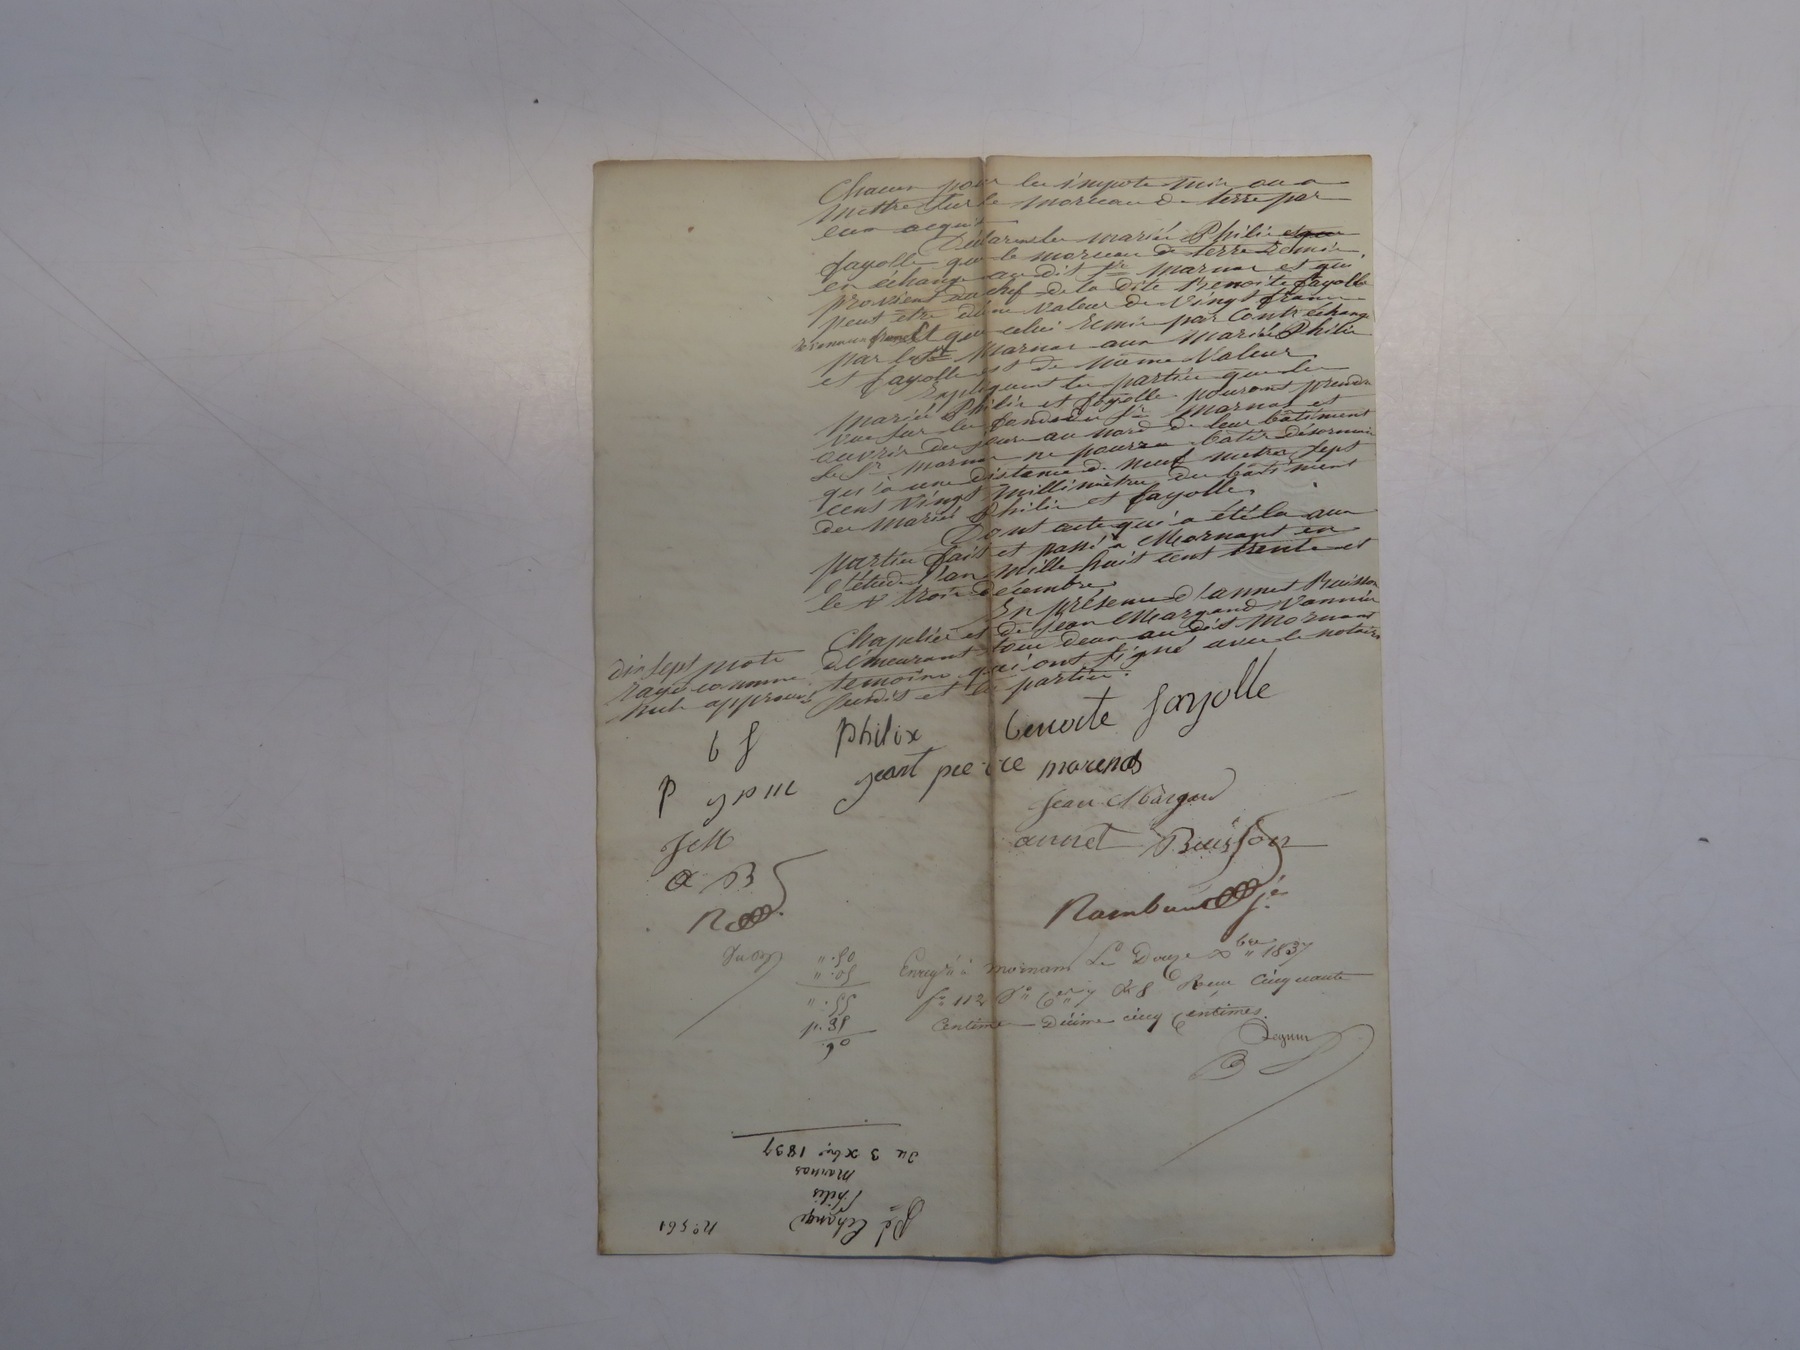 Chacun pour les impots mis ou a
mettre sur le morceau de terre par
eux acquit
Déclarent les mariés Philis
fayolle que le morceau de terre remis
en échange au dit Sr Marnas et qui
provient du chef de la dite Benoite fayolle
peut être d'une valeur de Vingt francs
Et que celui remis par Contr échange
par le Sr Marnas aux Mariés Philis
et fayolle est de même Valeur
Expliquent les parties que les
Mariés Philis et fayolle pouront prendre
vue sur les fonds du Sr Marnas et
ouvrir des jours au nord de leur bâtiment
le Sr Marnas ne pourra bâtir désormais
qu'à une distance de neuf metres sept
cent Vingt millimètres du bâtiment
des Mariés Philis et fayolle
Dont acte qui a été lu aux
parties fait et passé a Mornant en
l'étude l'an mille huit cent trente et
le trois décembre
En présence d'annet Buisson
Chapelier et de Jean Margand Vannier
démeurant tous deux au dit Mornant
temoins qui ont signé avec le notaire
susdit et les parties.
dix sept mots
rayés comme
nuls approuvés
b f philix benoite fayolle
p jpm jeant pierre marnas
Jean Margand
JM annet Buisson
a B
R Rambaud
Enregtré à Mornant Le Douze Xbre 1837
fo 112 Vo Cen 7 & 8 Reçu cinquante
Centimes Décime cinq centimes.
" . 50
" . 50
" . 55
p. 35
. 90
No 561
Echange
Philis
Marnas
du 3 Xbre 1837